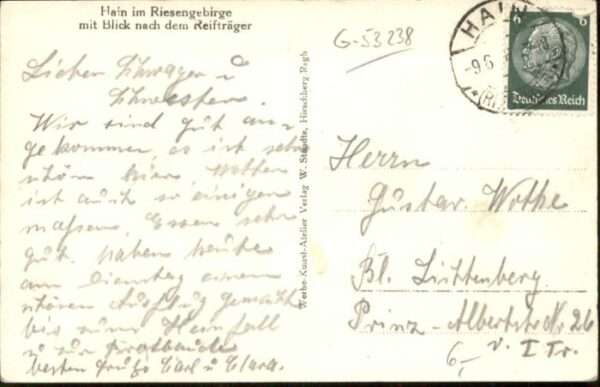 Hain im Riesengebirge
mit Blick nach dem Reifträger
G-53238
HAIN
-9.6
(RI
6
6
Deutsches Reich
Lieber Schwager u
Schwester.
Wir sind gut an-
gekommen, es ist sehr
schön hier, Wetter
ist auch so einiger
massen, Essen sehr
gut. haben heute
am Dienstag einen
schönen Ausflug gemacht
bis zum Hainfall
u zur
besten Grüße Carl u Clara.
Werbe-Kunst-Atelier Verlag W. Staudte, Hirschberg Rsgb
Herrn
Gustav Wothe
Bl. Lichtenberg
Prinz-Albertstr Nr 26
v. I Tr.
6,-